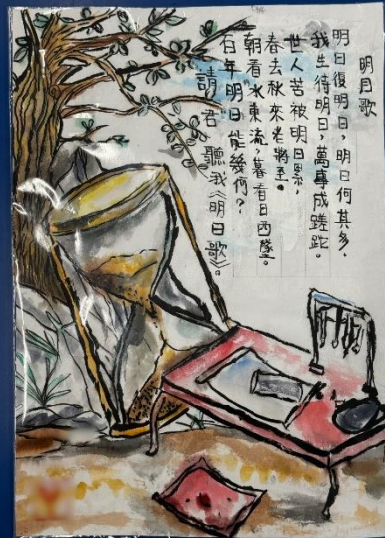 明日歌
明日復明日，明日何其多，
我生待明日，萬事成蹉跎。
世人苦被明日累，
春去秋來老將至。
朝看水東流，暮看日西墜。
百年明日能幾何？
請君聽我《明日歌》。